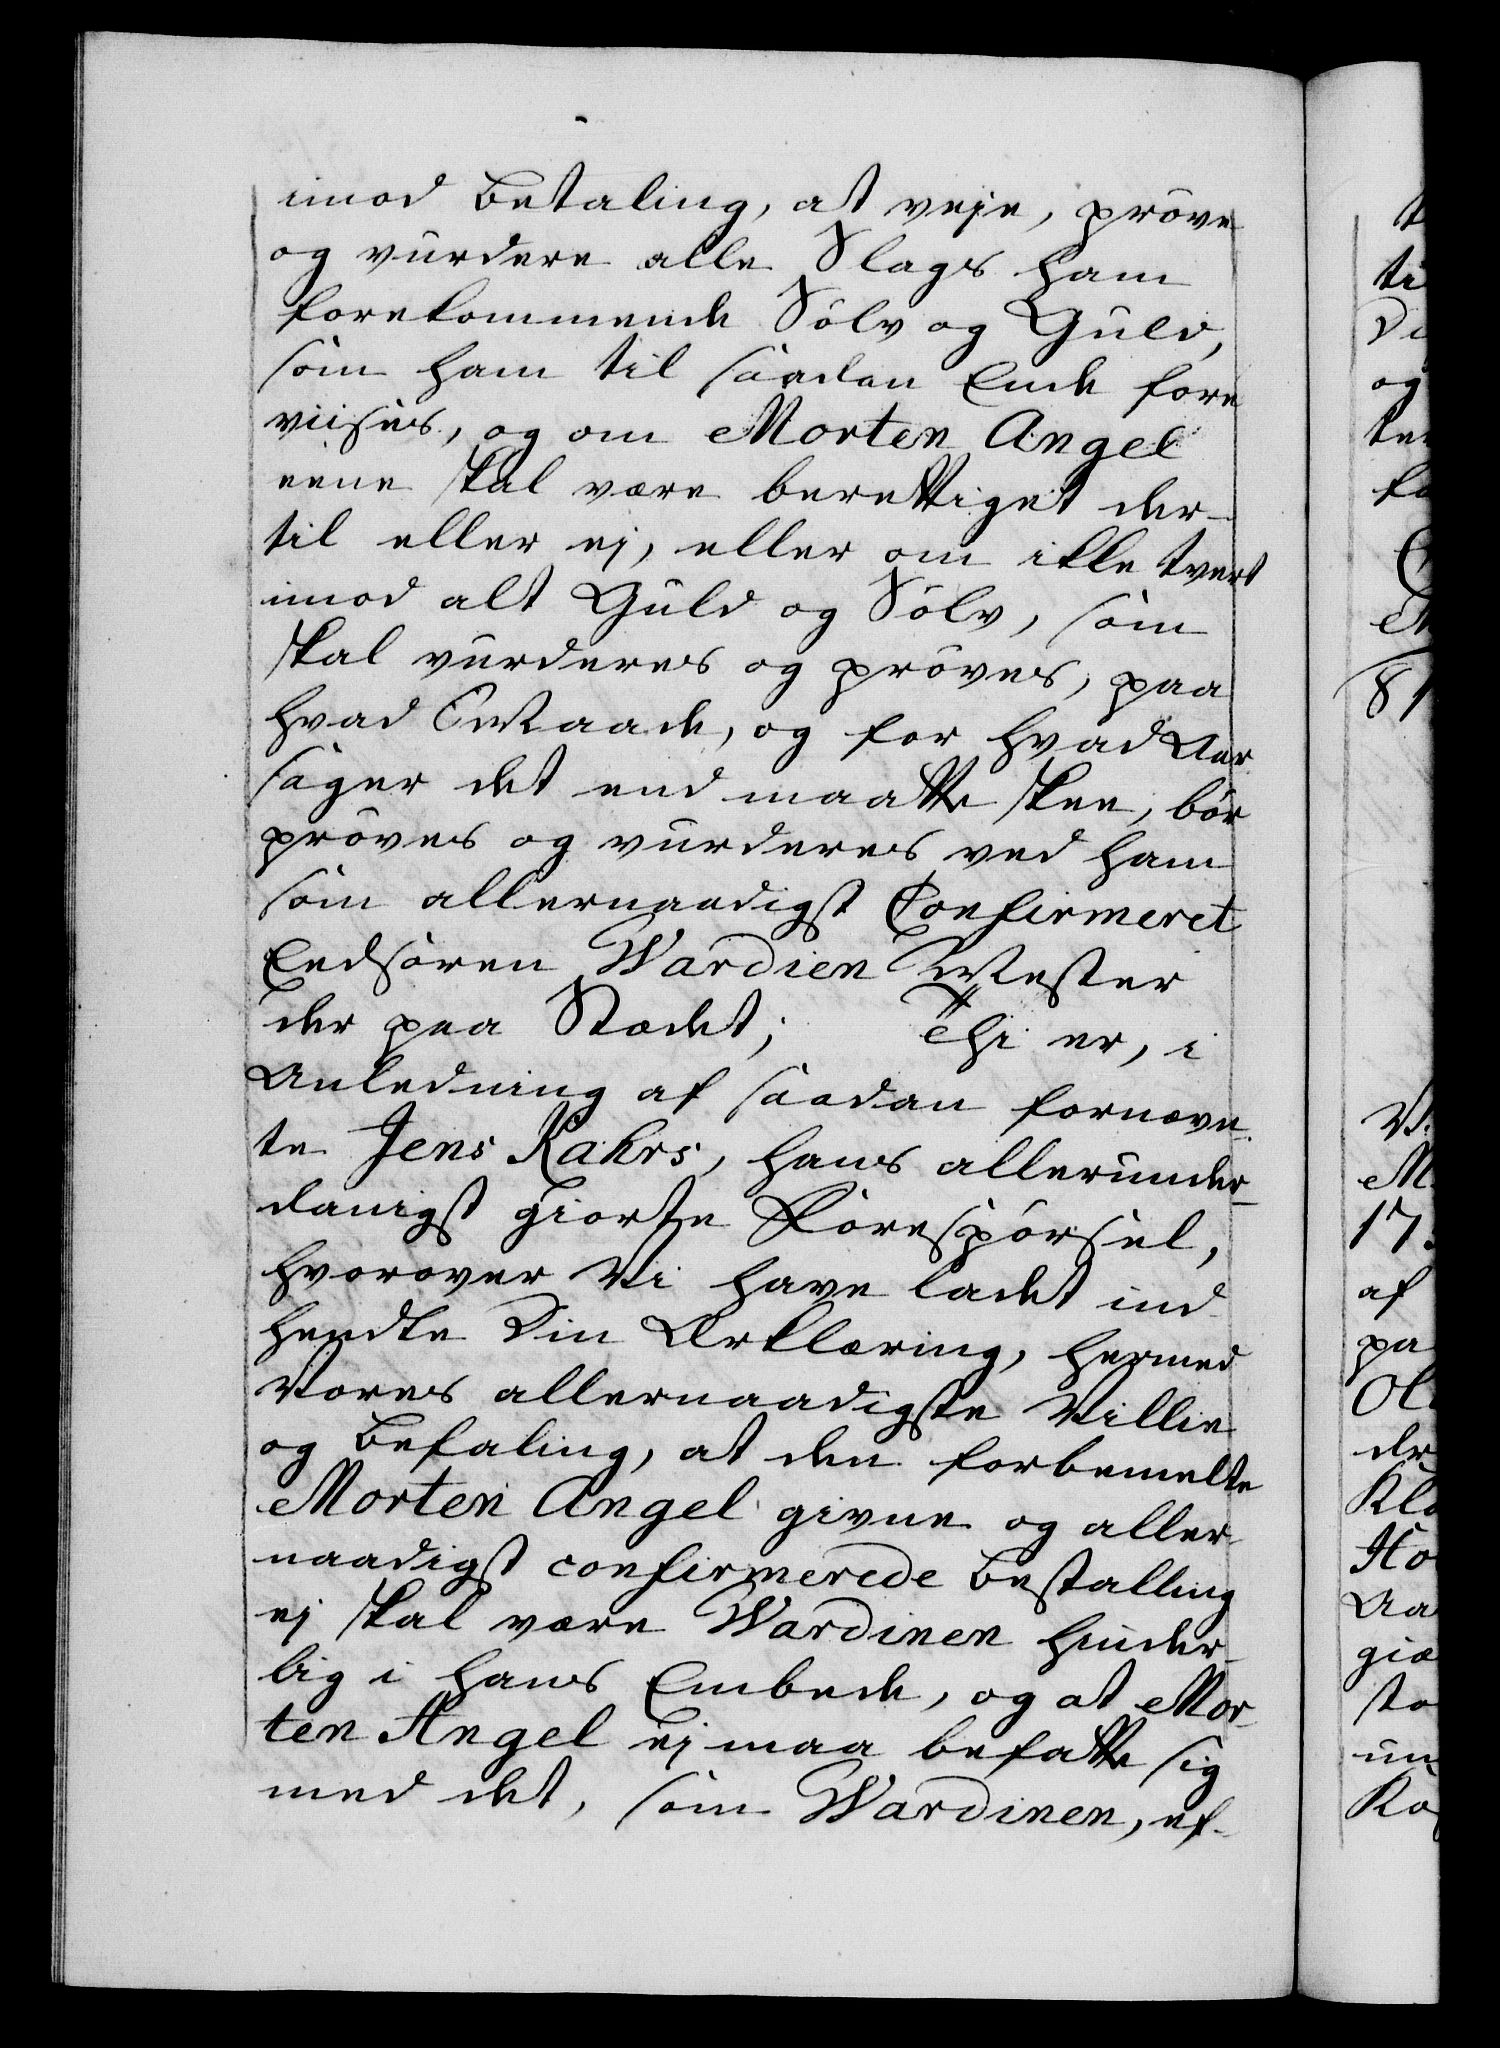 imod betaling, at veje, pröve
og vurdere alle Slags ham
forekommende Sölv og Guld,
som ham til saadan Ende fore
viises, og om Morten Angel
eene skal være berettiget der-
til eller ej, eller om ikke tvert
imod alt Guld og Sölv, som
skal vurderes og pröves, paa
hvad Maade, og for hvad Aar
sager det end maatte skee, bör
pröves og vurderes ved ham
som allernaadigst Confirmeret
Eedsoren Wardien Mester
der paa Stædet; Thi er, i
Anledning af saadan fornævn-
te Jens Kahrs, hans allerunder-
danigst giorte Forespörsel,
hvorover Vi have ladet ind-
hendte Din Erklæring, hermed
Vores allernaadigste Villie
og Befaling, at den forbemelte
Morten Angel givne og aller-
naadigst confirmerede bestalling
ej skal være Wardinen hinder-
lig i hans Embede, og at Mor-
ten Angel ej maa befatte sig
med det, som Wardinen, ef-